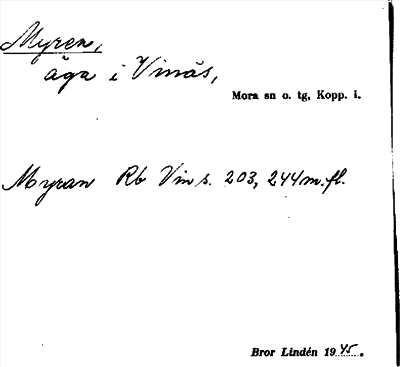 Myren,
äga i Vinäs,
Mora sn o. tg, Kopp. l.
Myran Rb Vin s. 203, 244 m.fl.
Bror Lindén 1945.